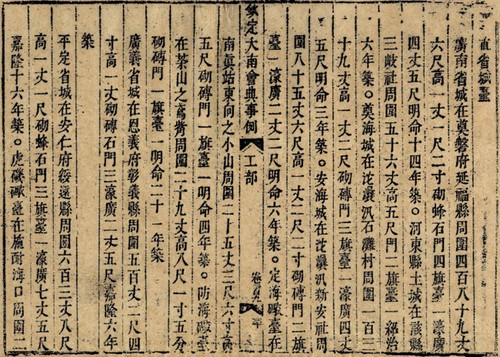 直省城臺
廣南省城在奠磐府延福縣周圍四百八十九丈
六尺高一丈一尺二寸砌蜂石門四旗臺一濠廣
四丈五尺明命十四年築。河東縣土城在該縣
三歧社周圍五十六丈高五尺門二旗臺一紹治
六年築。奠海城在沱㶞汛石灘村周圍一百三
十九丈高一丈二尺砌磚門三旗臺一濠廣四丈
五尺明命三年築。安海城在沱㶞汛新安社周
圍八十五丈六尺高一丈二尺二寸砌磚門二旗
臺一濠廣二丈二尺明命六年築。定海礮臺在
欽定大南會典事例 工部
南眞站東向之小山周圍二十五丈三尺六寸高
五尺砌磚門一旗臺一明命四年築。防海礮臺
在茅山之周圍二十九丈高八尺一寸五分
砌磚門一旗臺一明命二十一年築
廣義省城在思義府彰義縣周圍五百二丈四
寸高一丈砌磚石門三濠廣二丈五尺嘉隆六年
築
平定省城在安仁府綏遠縣周圍六百三丈八尺
高一丈一尺砌蜂石門三旗臺一濠廣七丈五尺
嘉隆十六年築。虎磯礮臺在施耐海口周圍二